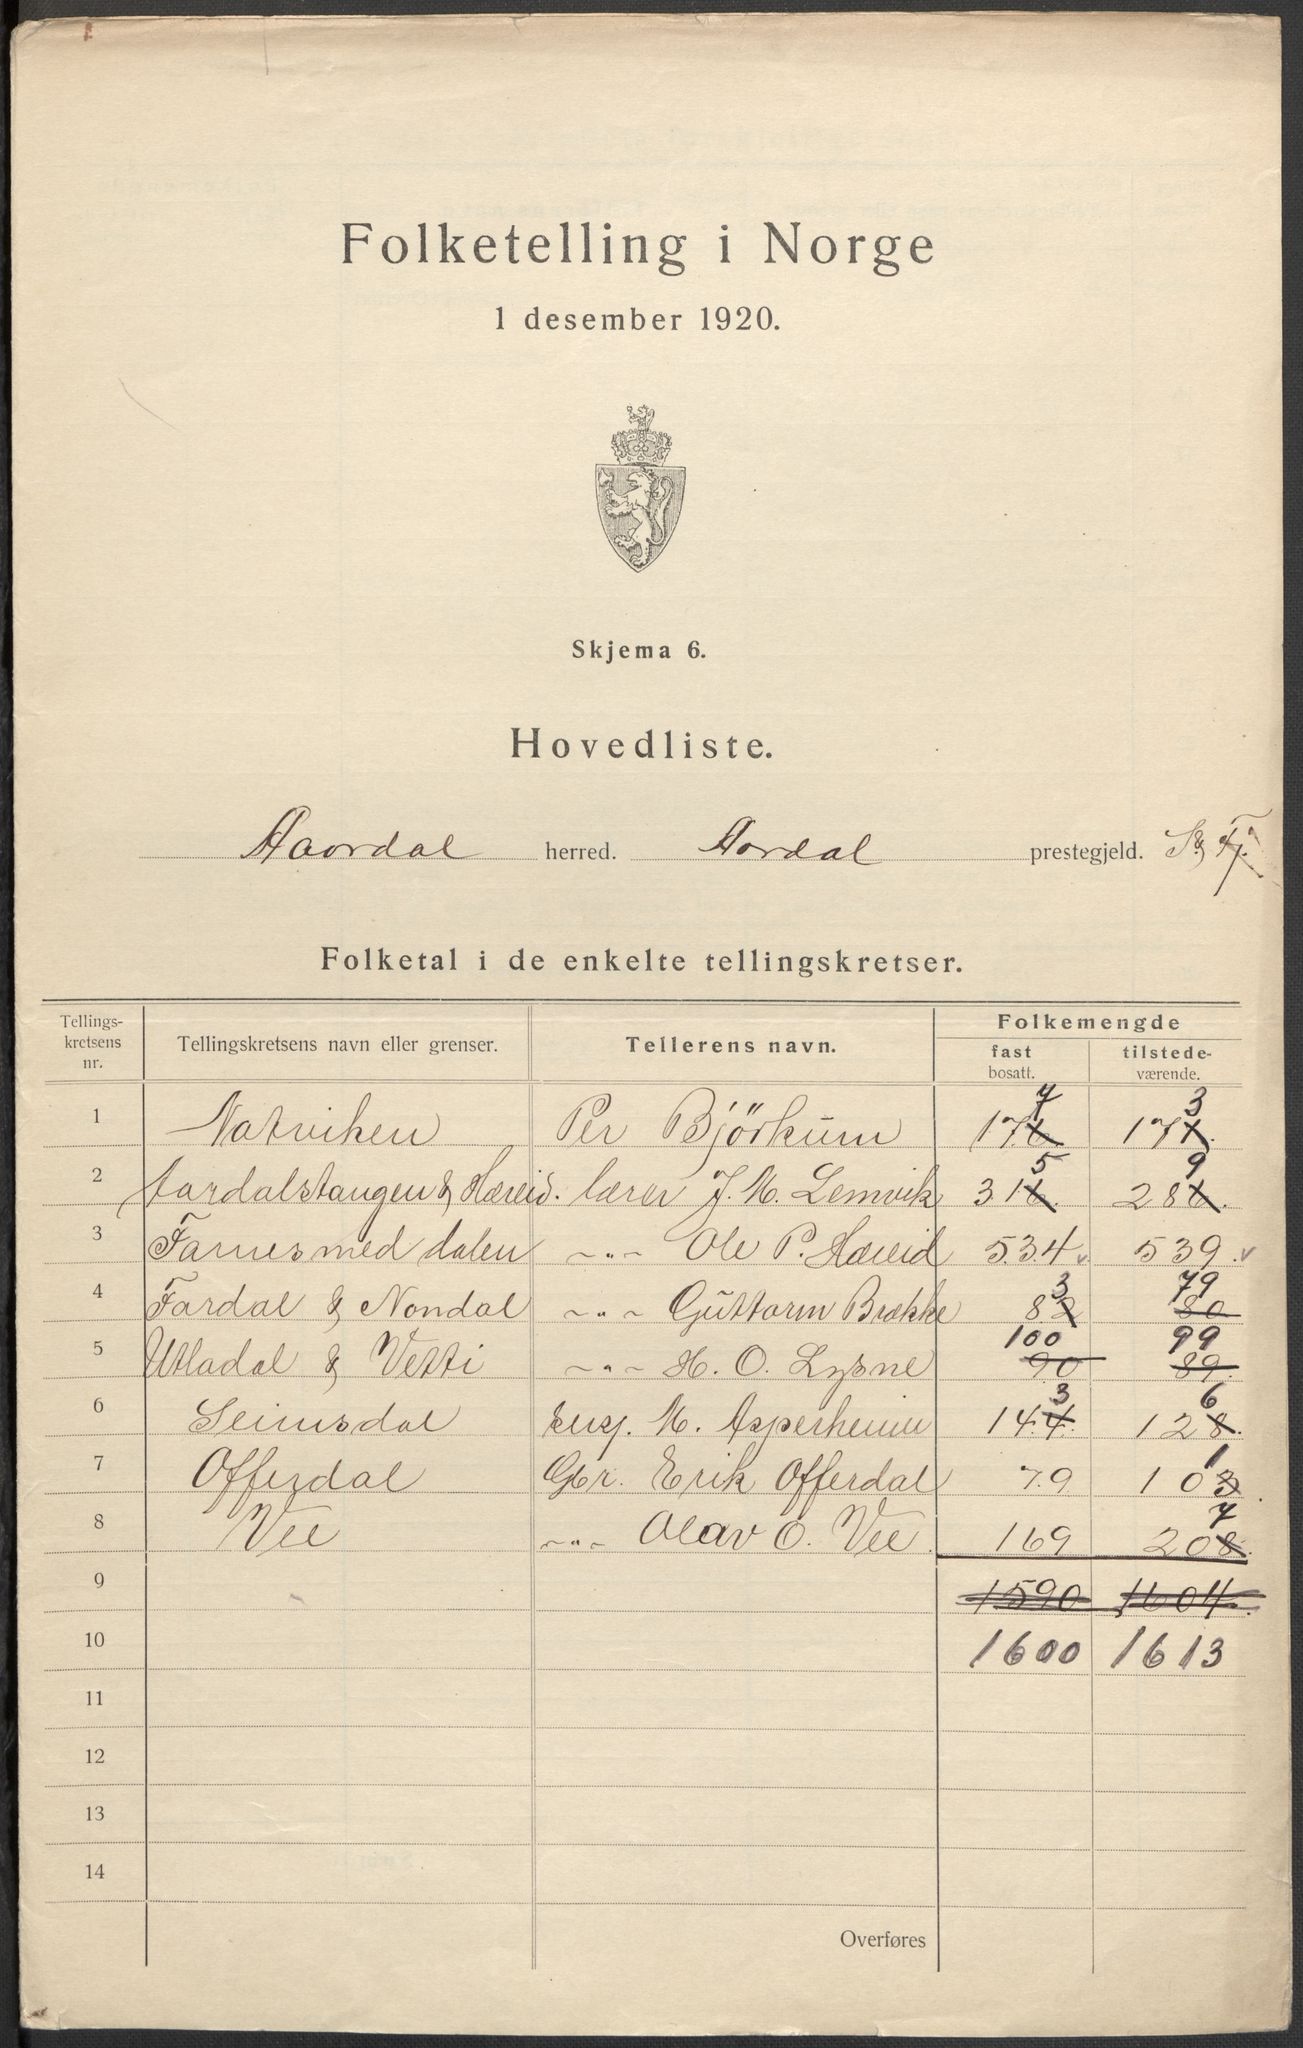 Folketelling i Norge
1 desember 1920.
Skjema 6.
Hovedliste.
Aardal herred. Aardal prestegjeld. S. & Fj.
Folketal i de enkelte tellingskretser.
Tellings-kretsens nr. Tellingskretsens navn eller grenser. Tellerens navn. Folkemengde fast bosatt. tilstede-værende.
7 3
1 Natviken Per Bjørkum 176 171.
5 9
2 Aardalstangen & Hæreid. lærer J. M. Lemvik 316. 286.
3 Farnes med dalen -"- Ole P. Hæreid 534 v 539. v
3 79
4 Fardal & Nondal -"- Guttorm Brække 82 80
100 99
5 Utladal & Vetti -"- H. O. Lysne 90 89.
3 6
6 Seimsdal M. Asperheim 144. 128.
1
7 Offerdal Gbr. Erik Offerdal 79 103.
7
8 Vee -"- Olav O. Vee. 169 208.
9 1590 1604.
10 1600 1613
11
12
13
14
Overføres